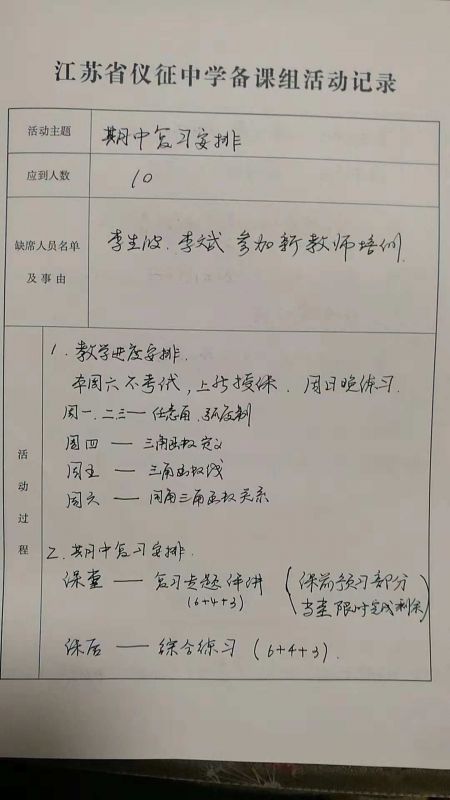 江苏省仪征中学备课组活动记录
活动主题 期中复习安排
应到人数 10
缺席人员名单及事由 李生波、李斌 参加新教师培训.
活动过程
1. 教学进度安排.
本周六不考试,上新授课. 周日晚练习.
周一、二三——任意角、弧度制
周四 —— 三角函数定义
周五 —— 三角函数线
周六 —— 同角三角函数关系
2. 期中复习安排.
课堂 —— 复习专题评讲 (课前预习部分
(6+4+3) 当堂限时完成剩余)
课后 —— 综合练习 (6+4+3).